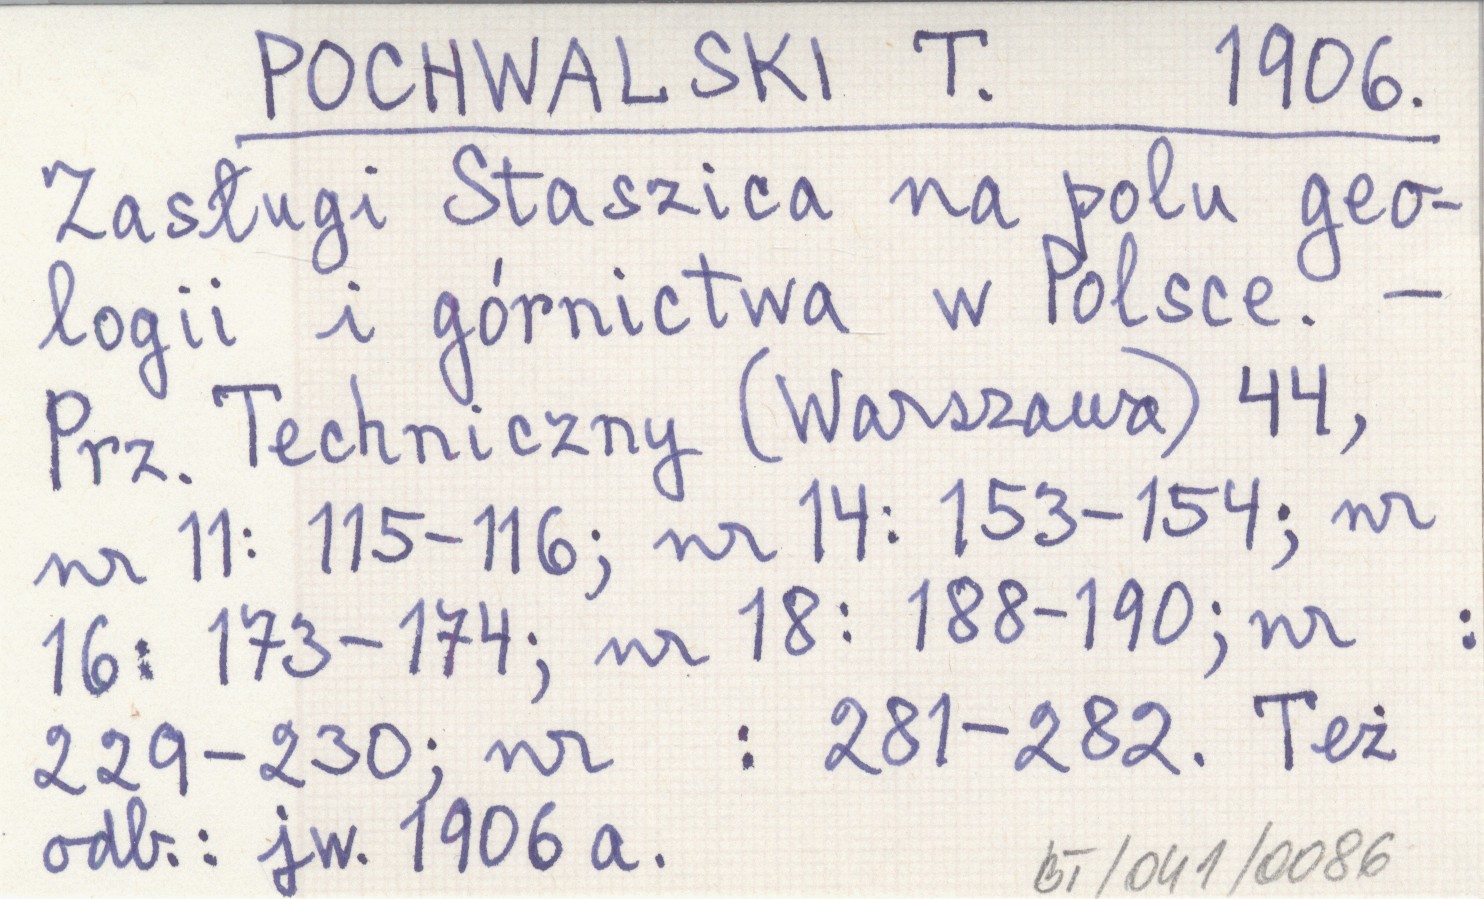 POCHWALSKI T. 1906.
Zasługi Staszica na polu geo-
logii i górnictwa w Polsce. –
Prz. Techniczny (Warszawa) 44,
nr 11: 115–116; nr 14: 153–154; nr
16: 173–174; nr 18: 188–190; nr :
229–230; nr : 281–282. Też
odb.: jw. 1906 a.
BI/041/0086